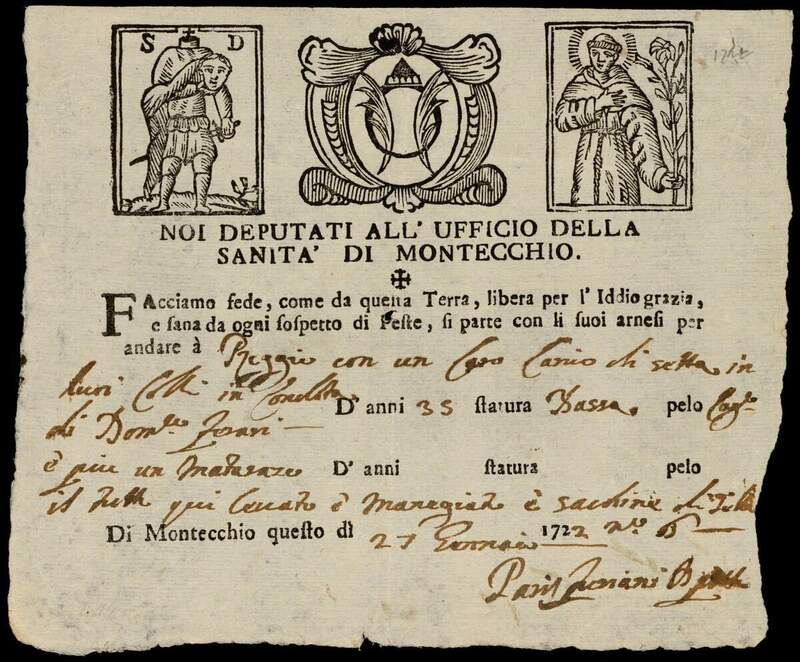 S D
NOI DEPUTATI ALL' UFFICIO DELLA
SANITA' DI MONTECCHIO.
FAcciamo fede, come da questa Terra, libera per l'Iddio grazia,
e sana da ogni sospetto di Peste, si parte con li suoi arnesi per
andare à Reggio con un Caro Carico di setta in
Colli in
D'anni 35 statura Bassa. pelo
di Dom.co Ferari
è più un D'anni statura pelo
il tutto qui è è di
Di Montecchio questo dì 27 Gennaio 1722 n.o 6
Paris